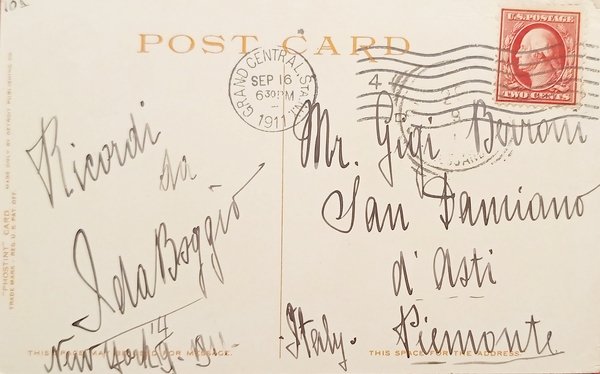 10A
POST CARD
U.S. POSTAGE
TWO CENTS
GRAND CENTRAL STA. N.Y.
SEP 16
6 30 PM
1911
4
Ricordi
da
Ida Boggio
New York
Mr. Gigi Berroni
San Damiano
d'Asti
Italy. Piemonte
"PHOSTINT" CARD
MADE ONLY BY DETROIT PUBLISHING CO.
TRADE MARK REG. U.S. PAT. OFF.
THIS SPACE MAY BE USED FOR MESSAGE.
THIS SPACE FOR THE ADDRESS.